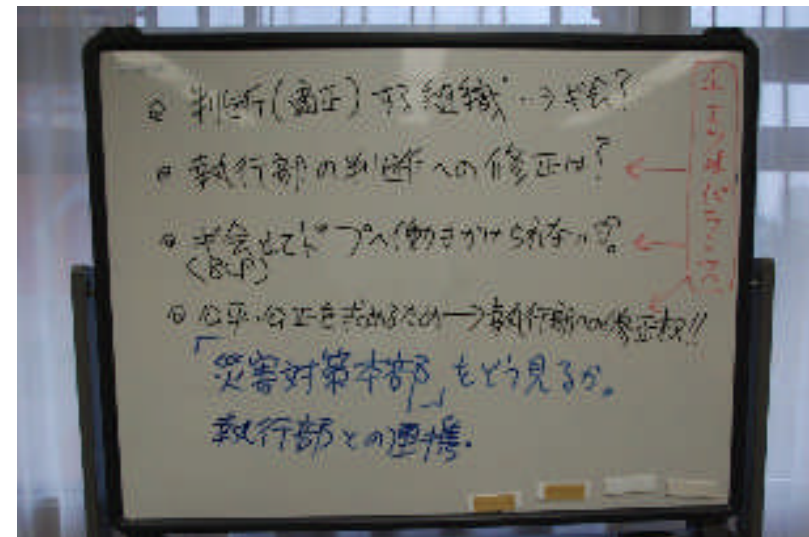 ◎ 判断(適正)する組織‥→議会?
◎ 執行部の判断への修正は?
◎ 議会としてトップへ働きかけられないか?
(BCP)
◎ 公平・公正を求めるため→執行部への修正权!!
「災害対策本部」をどう見るか。
執行部との連携.